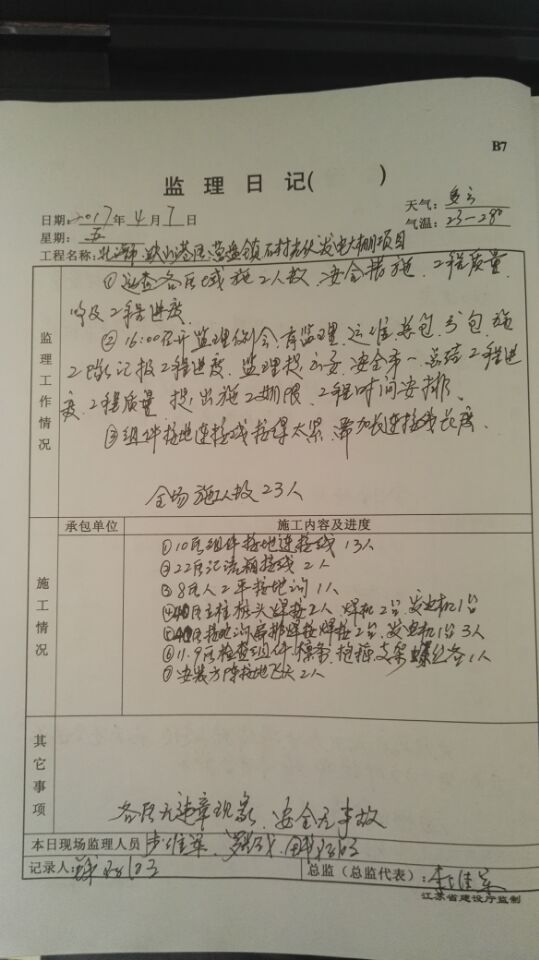 B7
监 理 日 记( )
日期:2017年4月7日 天气:多云
星期:五 气温:23-28°
工程名称:北海市铁山港区营盘镇石村光伏发电大棚项目
监理工作情况
①巡查各区域施工人数、安全措施、工程质量
以及工程进度.
②16:00召开监理例会,有监理、运维、总包、分包、施
工队汇报工程进度、监理提, 安全第一, 总结工程进
度、工程质量, 提出施工期限、工程时间安排.
③组件接地连接线接得太紧,需加长连接线长度.
全场施工人数23人
承包单位 施工内容及进度
施工情况
①10区组件接地连接线 13人
②22区汇流箱接线 2人
③8区人工平接地沟 1人
④ 区立柱桩头焊接2人, 焊机2台, 发电机1台
⑤ 区接地沟扁排焊接焊接2台, 发电机1台 3人
⑥11.9区检查组件、檩条、抱箍、支架螺丝各1人
⑦安装方阵接地 2人
其它事项
各区无违章现象、安全无事故
本日现场监理人员
记录人: 总监(总监代表):
江苏省建设厅监制